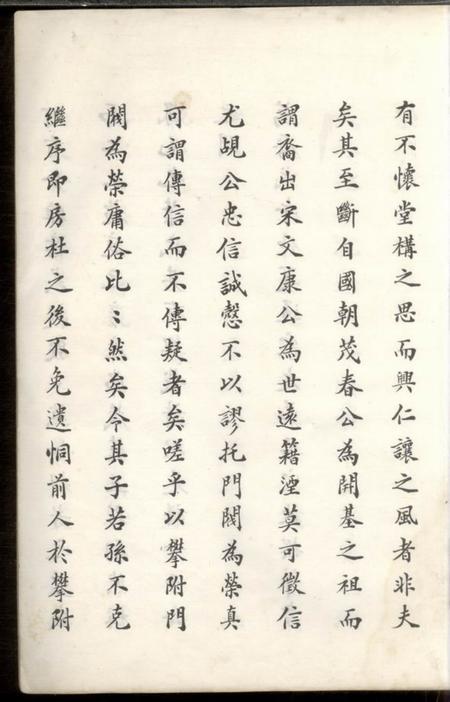 有不懷堂構之思而興仁讓之風者非夫
矣其至斷自國朝茂春公為開基之祖而
謂裔出宋文康公為世遠籍湮莫可徵信
尤覘公忠信誠慤不以謬托門閥為榮真
可謂傳信而不傳疑者矣嗟乎以攀附門
閥為榮庸俗比〻然矣今其子若孫不克
繼序即房杜之後不免遺恫前人於攀附